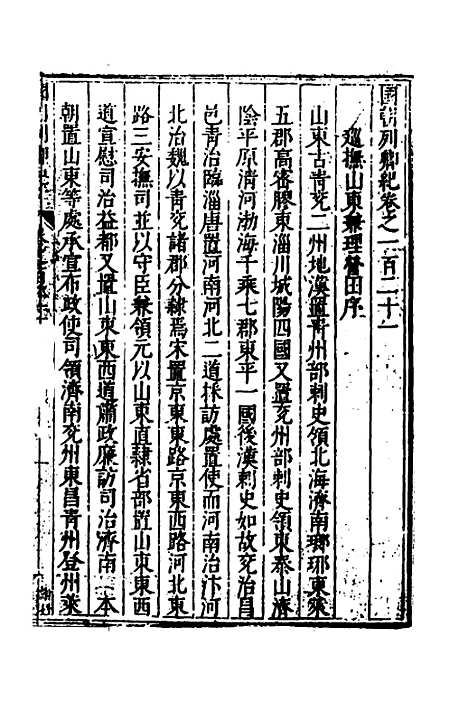 國朝列卿紀卷之一百二十一
巡撫山東兼理營田序
山東古青兗二州地漢置青州部刺史領北海濟南瑯琊東萊
五郡高密膠東淄川城陽四國又置兗州部刺史領東泰山濟
陰平原清河渤海千乘七郡東平一國後漢刺史如故兗治昌
邑青治臨淄唐置河南河北二道採訪處置使而河南治汴河
北治魏以青兗諸郡分隸焉宋置京東東路京東西路河北東
路三安撫司並以守臣兼領元以山東直隷省部置山東東西
道宣慰司治益都又置山東東西道肅政廉訪司治濟南 本
朝置山東等處承宣布政使司領濟南兗州東昌青州登州萊